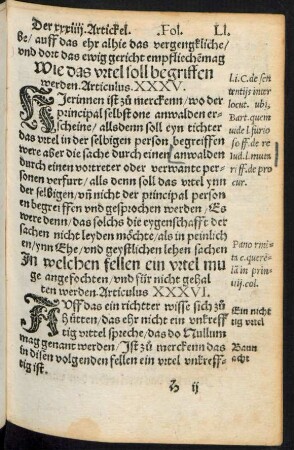 Der xxxiiij. Artickel. .Fol. LI.
be/ auff das ehr alhie das vergengkliche/
vnd dort das ewig gericht empfliechẽ mag
Wie das vrtel soll begriffen
werden. Articulus. XXXV.
Hierinnen ist zů merckenn/ wo der
principal selbst one anwalden er-
scheine/ allsdenn soll eyn richter
das vrtel in der selbigen person begreiffen
were aber die sache durch einen anwalden
durch einen vortreter oder verwante per-
sonen verfurt/ als denn soll das vrtel ynn
der selbigen/ vñ nicht der principal person
en begreiffen vnd gesprochen werden/ Es
were denn/ das solchs die eygenschafft der
sachen nicht leyden möchte/ als in peinlich
en/ ynn Ehe/ vnd geystlichen lehen sachen
In welchen fellen ein vrtel mu
ge angefochten/ vnd für nicht gehal
ten werden. Articulus XXXVI.
AUff das ein richter wisse sich zů
hůtten/ das ehr nicht ein vnkreff
tig vrttel spreche/ das do Nullum
mag genant werden/ Ist zů mercken das
in disen volgenden fellen ein vrtel vnkreff-
tig ist.
h ij
li. C. de sen
tentijs inter
locut. vbi,
Bart. quem
ff. de re
iud. l. mum
ff. de pro
cur.
Pano rmi
ta c. quere
in prin
col.
Ein nicht
tig vrtel
Bann
acht